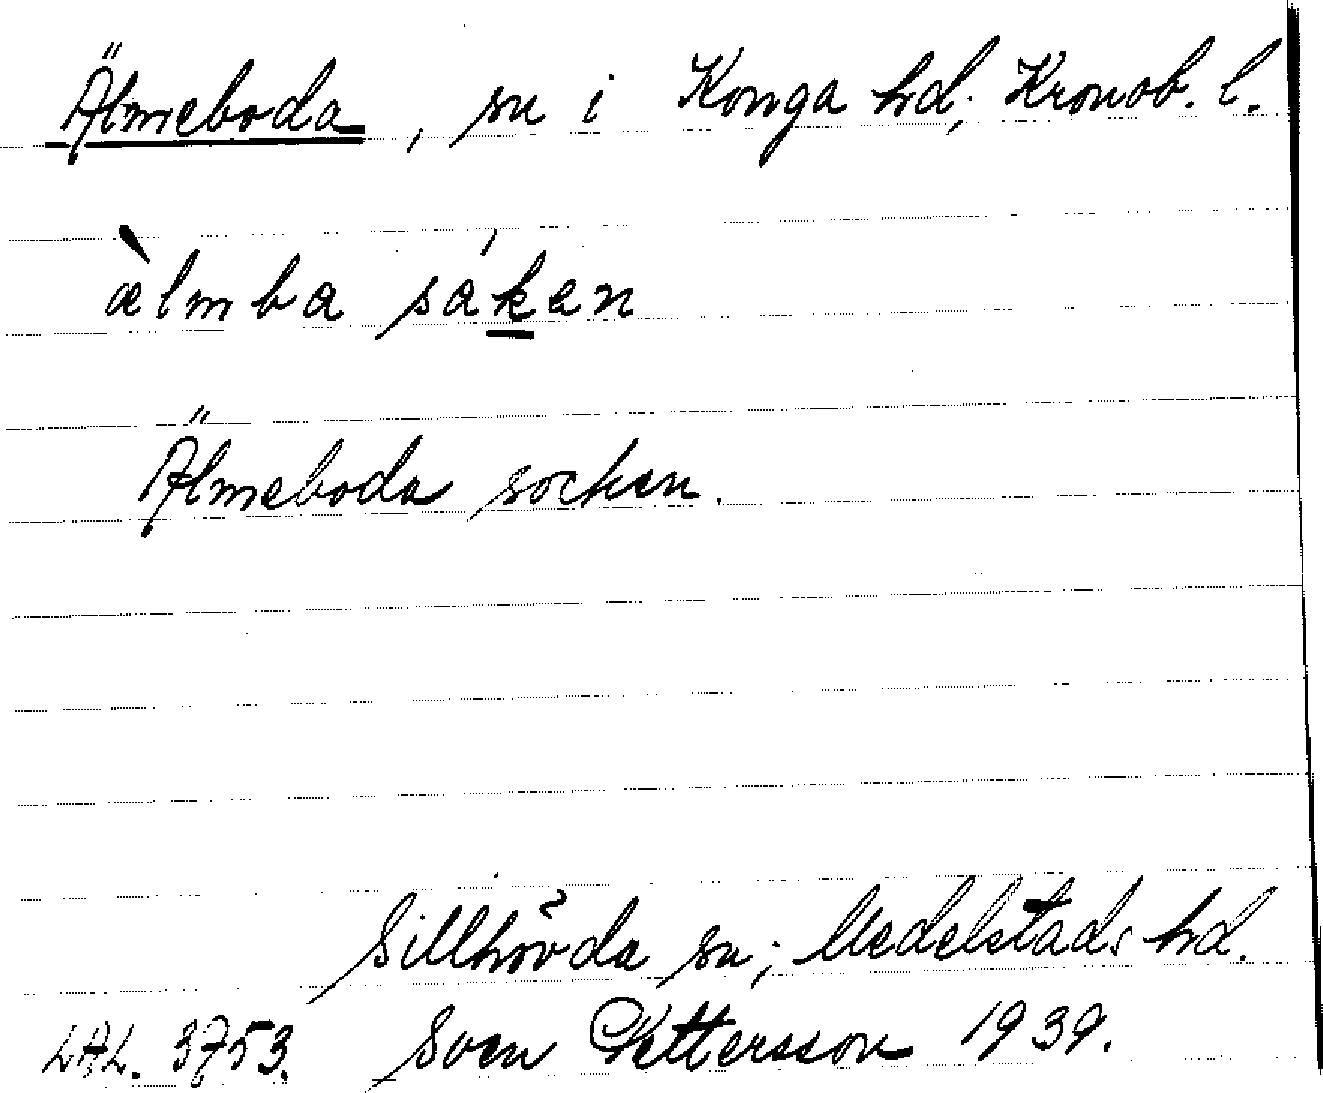 Älmeboda, sn i Konga hd; Kronob. l.
æ̀lmba sǻken
Älmeboda socken.
Sillhövda sn; Medelstads hd.
LAL. 3753. Sven Pettersson 1939.